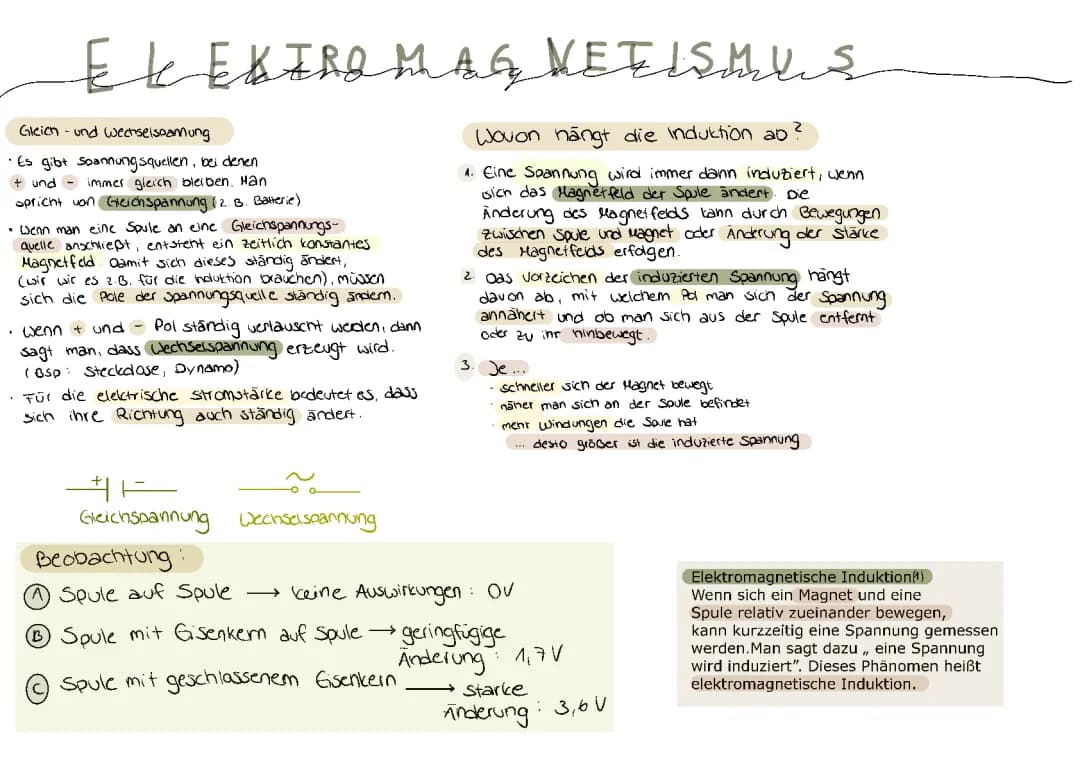 ELEKTROMAGNETISMUS
Elektromagnetismus
Gleich - und Wechselspannung
· Es gibt Spannungsquellen, bei denen
+ und - immer gleich bleiben. Man
spricht von Gleichspannung (z. B. Batterie)
· Wenn man eine Spule an eine Gleichspannungs-
quelle anschließt, entsteht ein zeitlich konstantes
Magnetfeld. Damit sich dieses ständig ändert,
(wir wir es z.B. für die Induktion brauchen), müssen
sich die Pole der Spannungsquelle ständig ändern.
· Wenn + und - Pol ständig vertauscht werden, dann
sagt man, dass Wechselspannung erzeugt wird.
(Bsp: Steckdose, Dynamo)
· Für die elektrische Stromstärke bedeutet es, dass
sich ihre Richtung auch ständig ändert.
+ -
Gleichspannung
~
Wechselspannung
Beobachtung:
A Spule auf Spule → keine Auswirkungen: 0V
B Spule mit Eisenkern auf Spule → geringfügige
Änderung: 1,7V
C Spule mit geschlossenem Eisenkern → starke
Änderung: 3,6V
Wovon hängt die Induktion ab?
1. Eine Spannung wird immer dann induziert, wenn
sich das Magnetfeld der Spule ändert. Die
Änderung des Magnetfelds kann durch Bewegungen
zwischen Spule und Magnet oder Änderung der Stärke
des Magnetfelds erfolgen.
2. Das Vorzeichen der induzierten Spannung hängt
davon ab, mit welchem Pol man sich der Spannung
annähert und ob man sich aus der Spule entfernt
oder zu ihr hinbewegt.
3. Je ...
· schneller sich der Magnet bewegt
· näher man sich an der Spule befindet
· mehr Windungen die Spule hat
... desto größer ist die induzierte Spannung
Elektromagnetische Induktion(1)
Wenn sich ein Magnet und eine
Spule relativ zueinander bewegen,
kann kurzzeitig eine Spannung gemessen
werden.Man sagt dazu „ eine Spannung
wird induziert". Dieses Phänomen heißt
elektromagnetische Induktion.